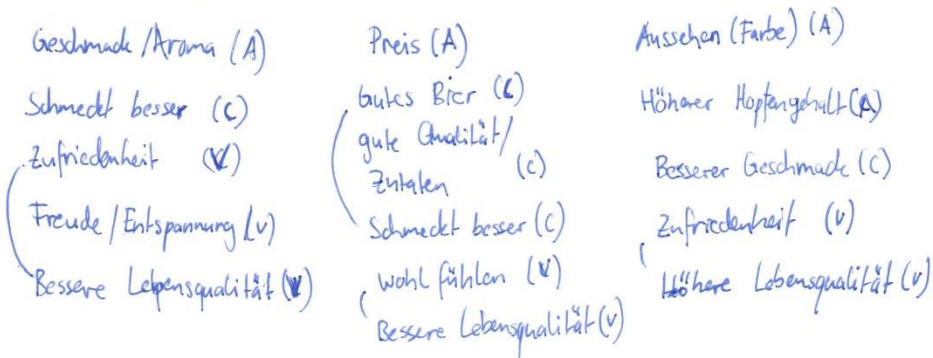 Geschmack/Aroma (A)
Schmeckt besser (C)
Zufriedenheit (V)
Freude/Entspannung (V)
Bessere Lebensqualität (V)
Preis (A)
Gutes Bier (C)
gute Qualität/
Zutaten (C)
Schmeckt besser (C)
Wohl fühlen (V)
Bessere Lebensqualität (V)
Aussehen (Farbe) (A)
Höherer Hopfengehalt (A)
Besserer Geschmack (C)
Zufriedenheit (V)
Höhere Lebensqualität (V)